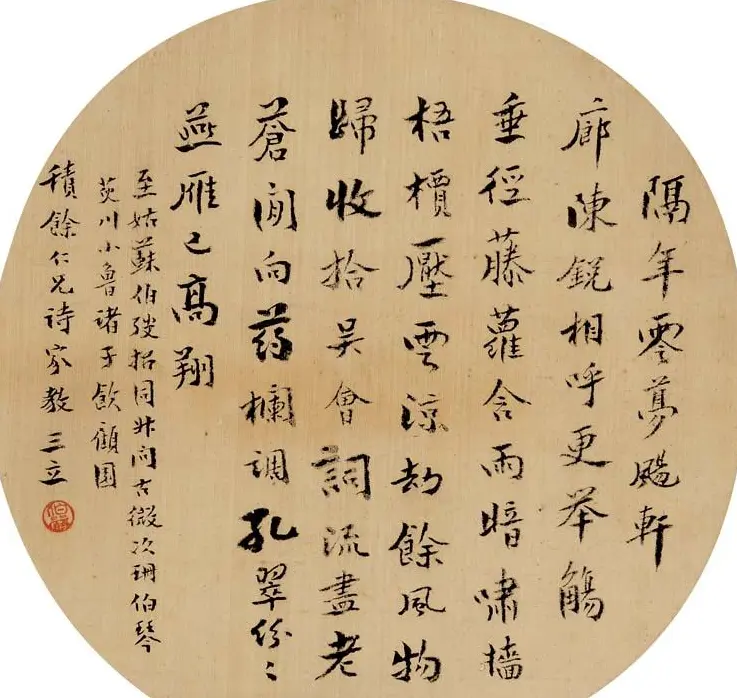 隔年零夢颺軒
廊陳銳相呼更举觴
垂徑藤蘿含雨暗嘯墻
梧檟壓雲涼劫餘風物
歸收拾吴會詞流盡老
蒼閒向药欄調孔翠紛〻
燕雁已高翔
至姑蘇伯弢招同叔問古微次珊伯琴
茭川小魯諸子飲顧園
積餘仁兄詩家教 三立